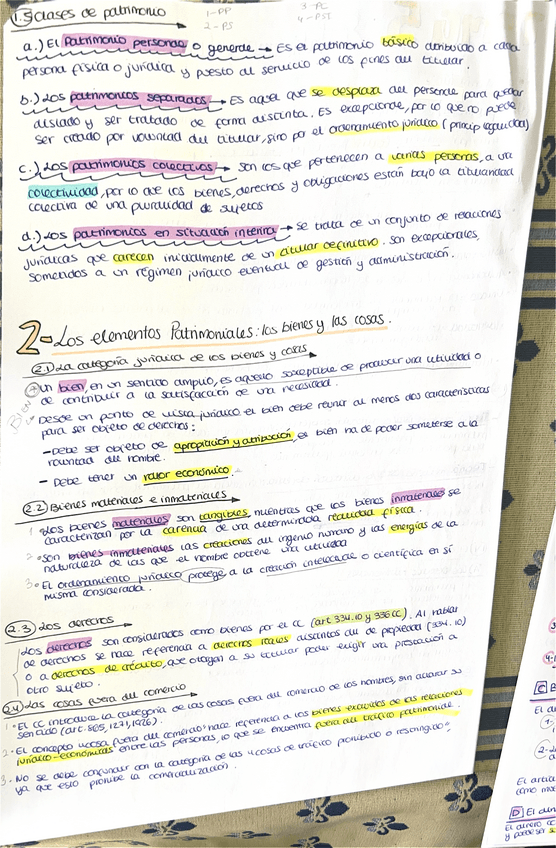 1.5 clases de patrimonio
1-PP
2-PS
3-PC
4-PSI
a.) El Patrimonio personal o general → Es el patrimonio básico atribuido a cada
persona física o jurídica y puesto al servicio de los fines del titular.
b.) Los patrimonios separados → Es aquel que se desplaza del personal para quedar
aislado y ser tratado de forma distinta. Es excepcional, por lo que no puede
ser creado por voluntad del titular, sino por el ordenamiento jurídico (princip seguridad)
c.) Los patrimonios colectivos → son los que pertenecen a varias personas, a una
colectividad, por lo que los bienes, derechos y obligaciones están bajo la titularidad
colectiva de una pluralidad de sujetos
d.) Los patrimonios en situación interina → se trata de un conjunto de relaciones
jurídicas que carecen inicialmente de un titular definitivo. son excepcionales,
sometidos a un régimen jurídico eventual de gestión y administración.
2- Los elementos Patrimoniales: los bienes y las cosas.
2.1) La categoría jurídica de los bienes y cosas
Un bien, en un sentido amplio, es aquello susceptible de producir una utilidad o
de contribuir a la satisfacción de una necesidad.
Bien
Desde un punto de vista jurídico el bien debe reunir al menos dos características
para ser objeto de derechos:
- Debe ser objeto de apropiación y atribución, es bien ha de poder someterse a la
voluntad del hombre.
- Debe tener un valor económico
2.2) Bienes materiales e inmateriales
1 Los bienes materiales son tangibles, mientras que los bienes inmateriales se
caracterizan por la carencia de una determinada realidad física.
2 • Son bienes inmateriales las creaciones del ingenio humano y las energías de la
naturaleza de las que el hombre obtiene una utilidad
3 • El ordenamiento jurídico protege a la creación intelectual o científica en sí
misma considerada.
2.3) Los derechos
Los derechos son considerados como bienes por el CC (art 334.10 y 336 CC). Al hablar
de derechos se hace referencia a derechos reales distintos del de propiedad (334.10)
o a derechos de crédito, que otorgan a su titular poder exigir una prestación a
otro sujeto.
2.4) Las cosas fuera del comercio
1 • El CC introduce la categoría de las cosas fuera del comercio de los hombres, sin aclarar su
sentido (art. 865, 1271, 1936).
2 • El concepto "cosa fuera del comercio" hace referencia a los bienes excluidos de las relaciones
jurídico-económicas entre las personas, lo que se encuentra fuera del tráfico patrimonial.
3 • No se debe confundir con la categoría de las "cosas de tráfico prohibido o restringido",
ya que esto prohíbe la comercialización.
El artíc
D El din
El dinero